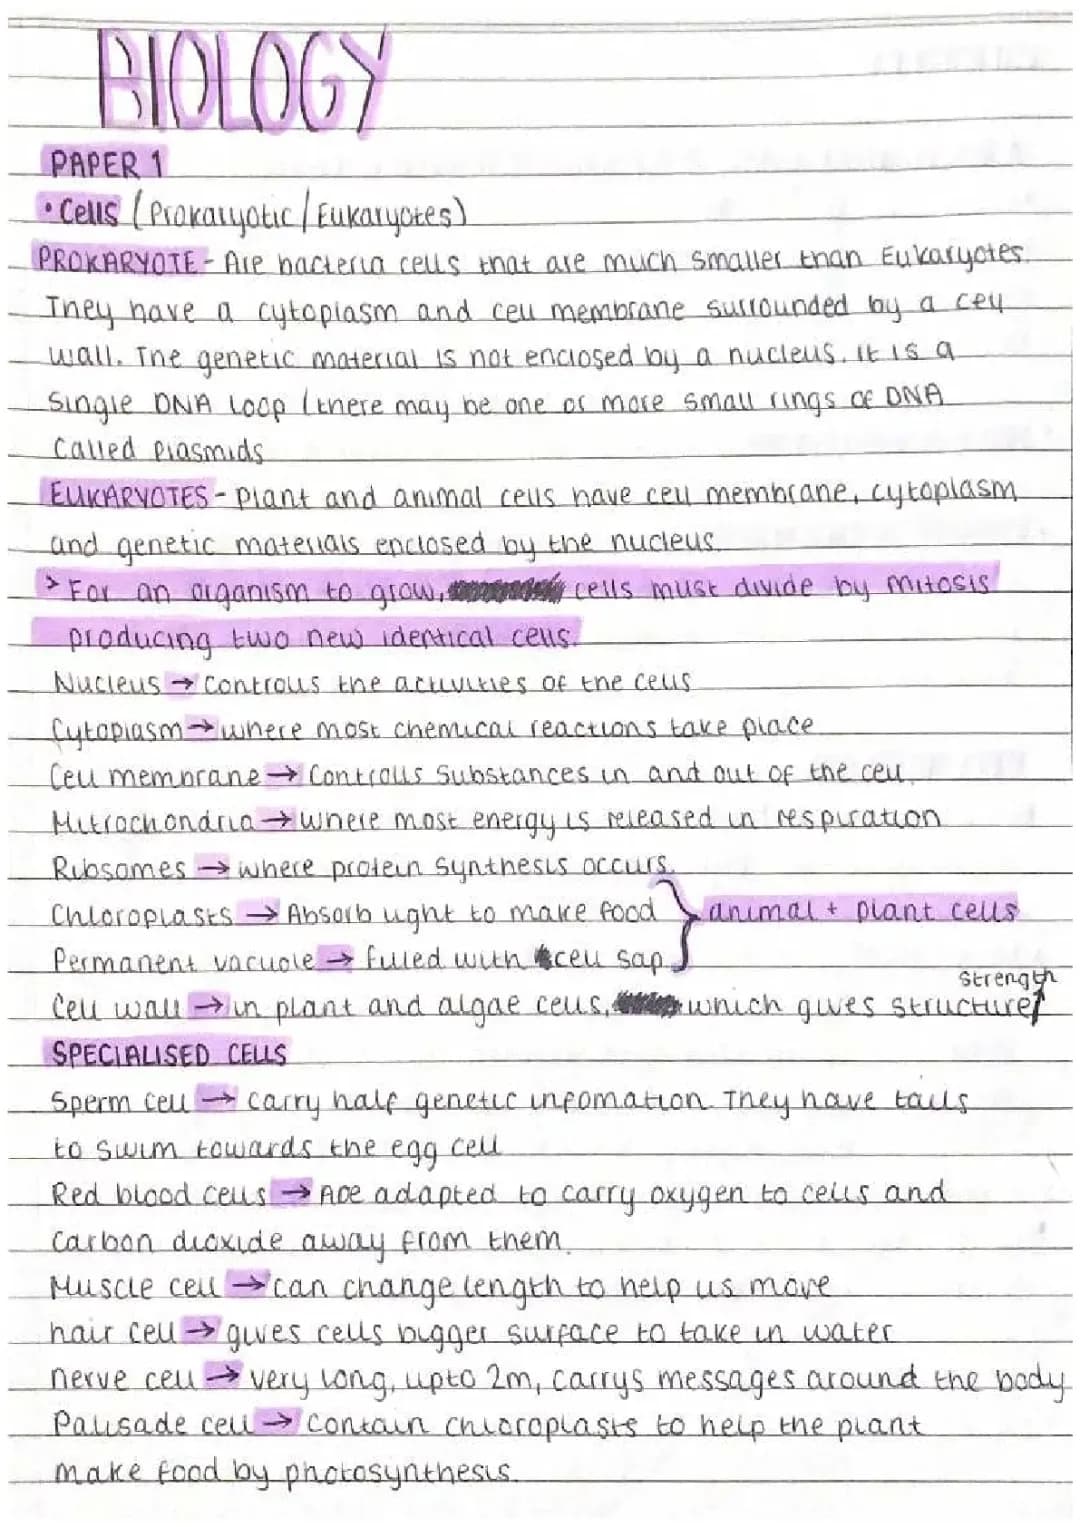 BIOLOGY
PAPER 1
• Cells (Prokaryotic/Eukaryotes)
PROKARYOTE - Are bacteria cells that are much smaller than Eukaryotes.
They have a cytoplasm and cell membrane surrounded by a cell
wall. The genetic material is not enclosed by a nucleus. it is a
single DNA loop (there may be one or more small rings of DNA
called plasmids
EUKARYOTES - Plant and animal cells have cell membrane, cytoplasm
and genetic materials enclosed by the nucleus.
> For an organism to grow, cells must divide by mitosis
producing two new identical cells.
Nucleus → controlls the activities of the cells
Cytoplasm → where most chemical reactions take place
Cell membrane → Controlls substances in and out of the cell.
Mitrochondria → where most energy is released in respiration
Ribsomes → where protein synthesis occurs.
Chloroplasts → Absorb light to make food } animal + plant cells
Permanent vacuole → filled with cell sap
strength
Cell wall → in plant and algae cells, which gives structure↑
SPECIALISED CELLS
Sperm cell → carry half genetic infomation. They have tails
to swim towards the egg cell
Red blood cells → Are adapted to carry oxygen to cells and
carbon dioxide away from them.
Muscle cell → can change length to help us move
hair cell → gives cells bigger surface to take in water
nerve cell → very long, upto 2m, carrys messages around the body
Palisade cell → contain chloroplasts to help the plant
make food by photosynthesis.